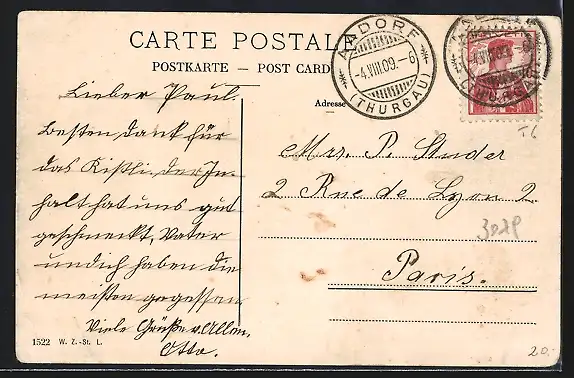 CARTE POSTALE
POSTKARTE – POST CARD
AADORF
-4.VIII.09.-6
(THURGAU)
Adresse
Lieber Paul.
Besten dank für
das Kistli. der In-
halt hat uns gut
geschmeckt, Vater
und ich haben die
meisten gegessen
Viele Grüße v. Allen.
Otto.
Mr. P. Studer
2 Rue de Lyon 2
Paris.
1522 W. Z.-St. L.
20.-